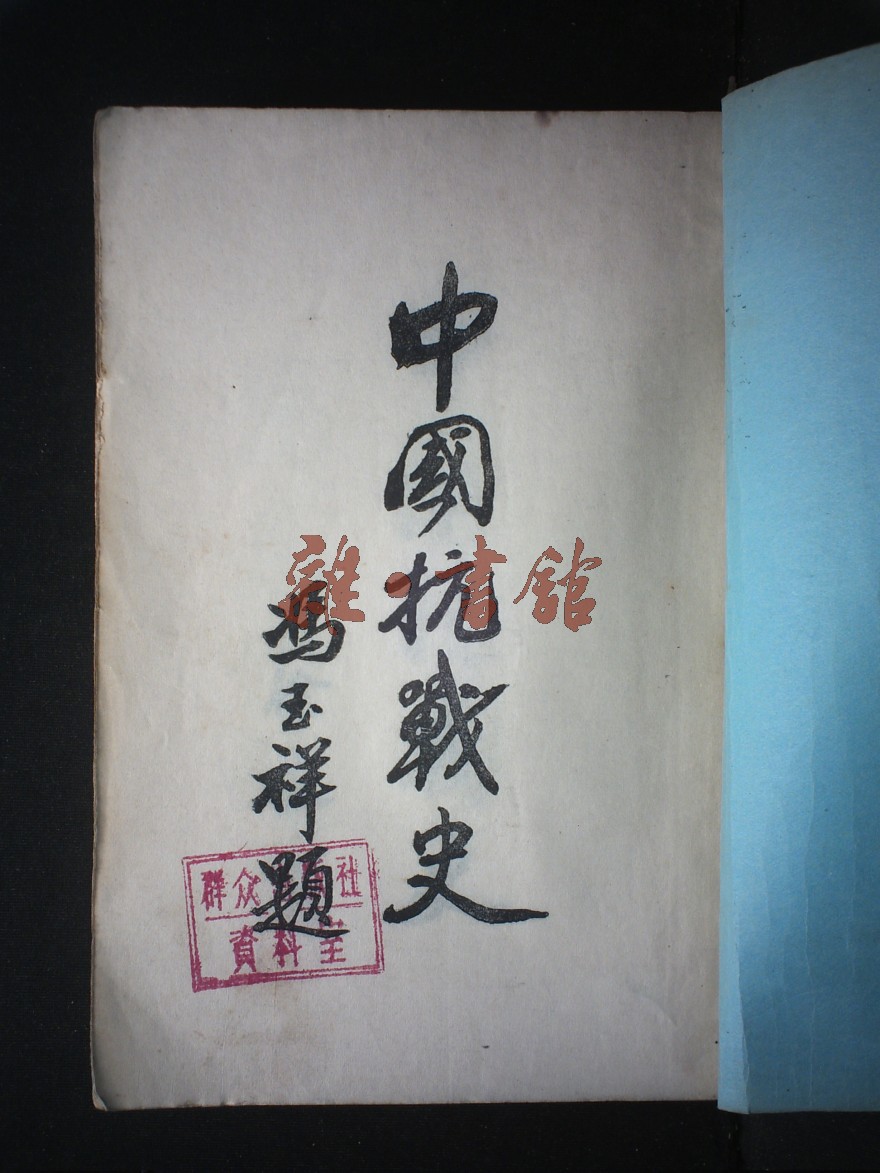 中國抗戰史
馮玉祥題
雜·書館
群众 社
資料室